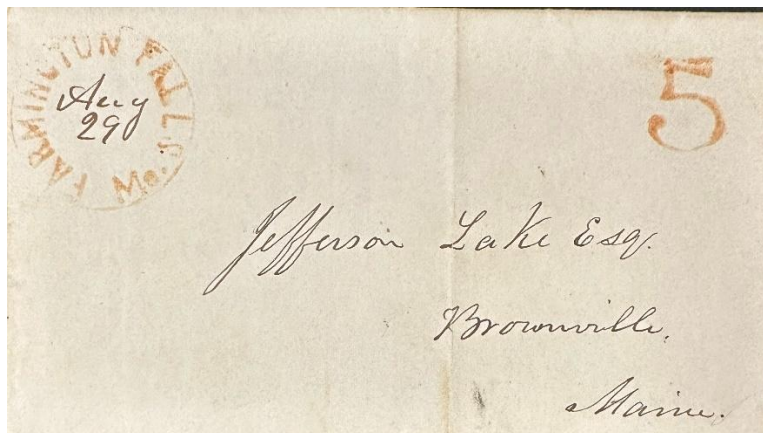 FARMINGTON FALLS Me.
Aug
29
5
Jefferson Lake Esq.
Brownville,
Maine.